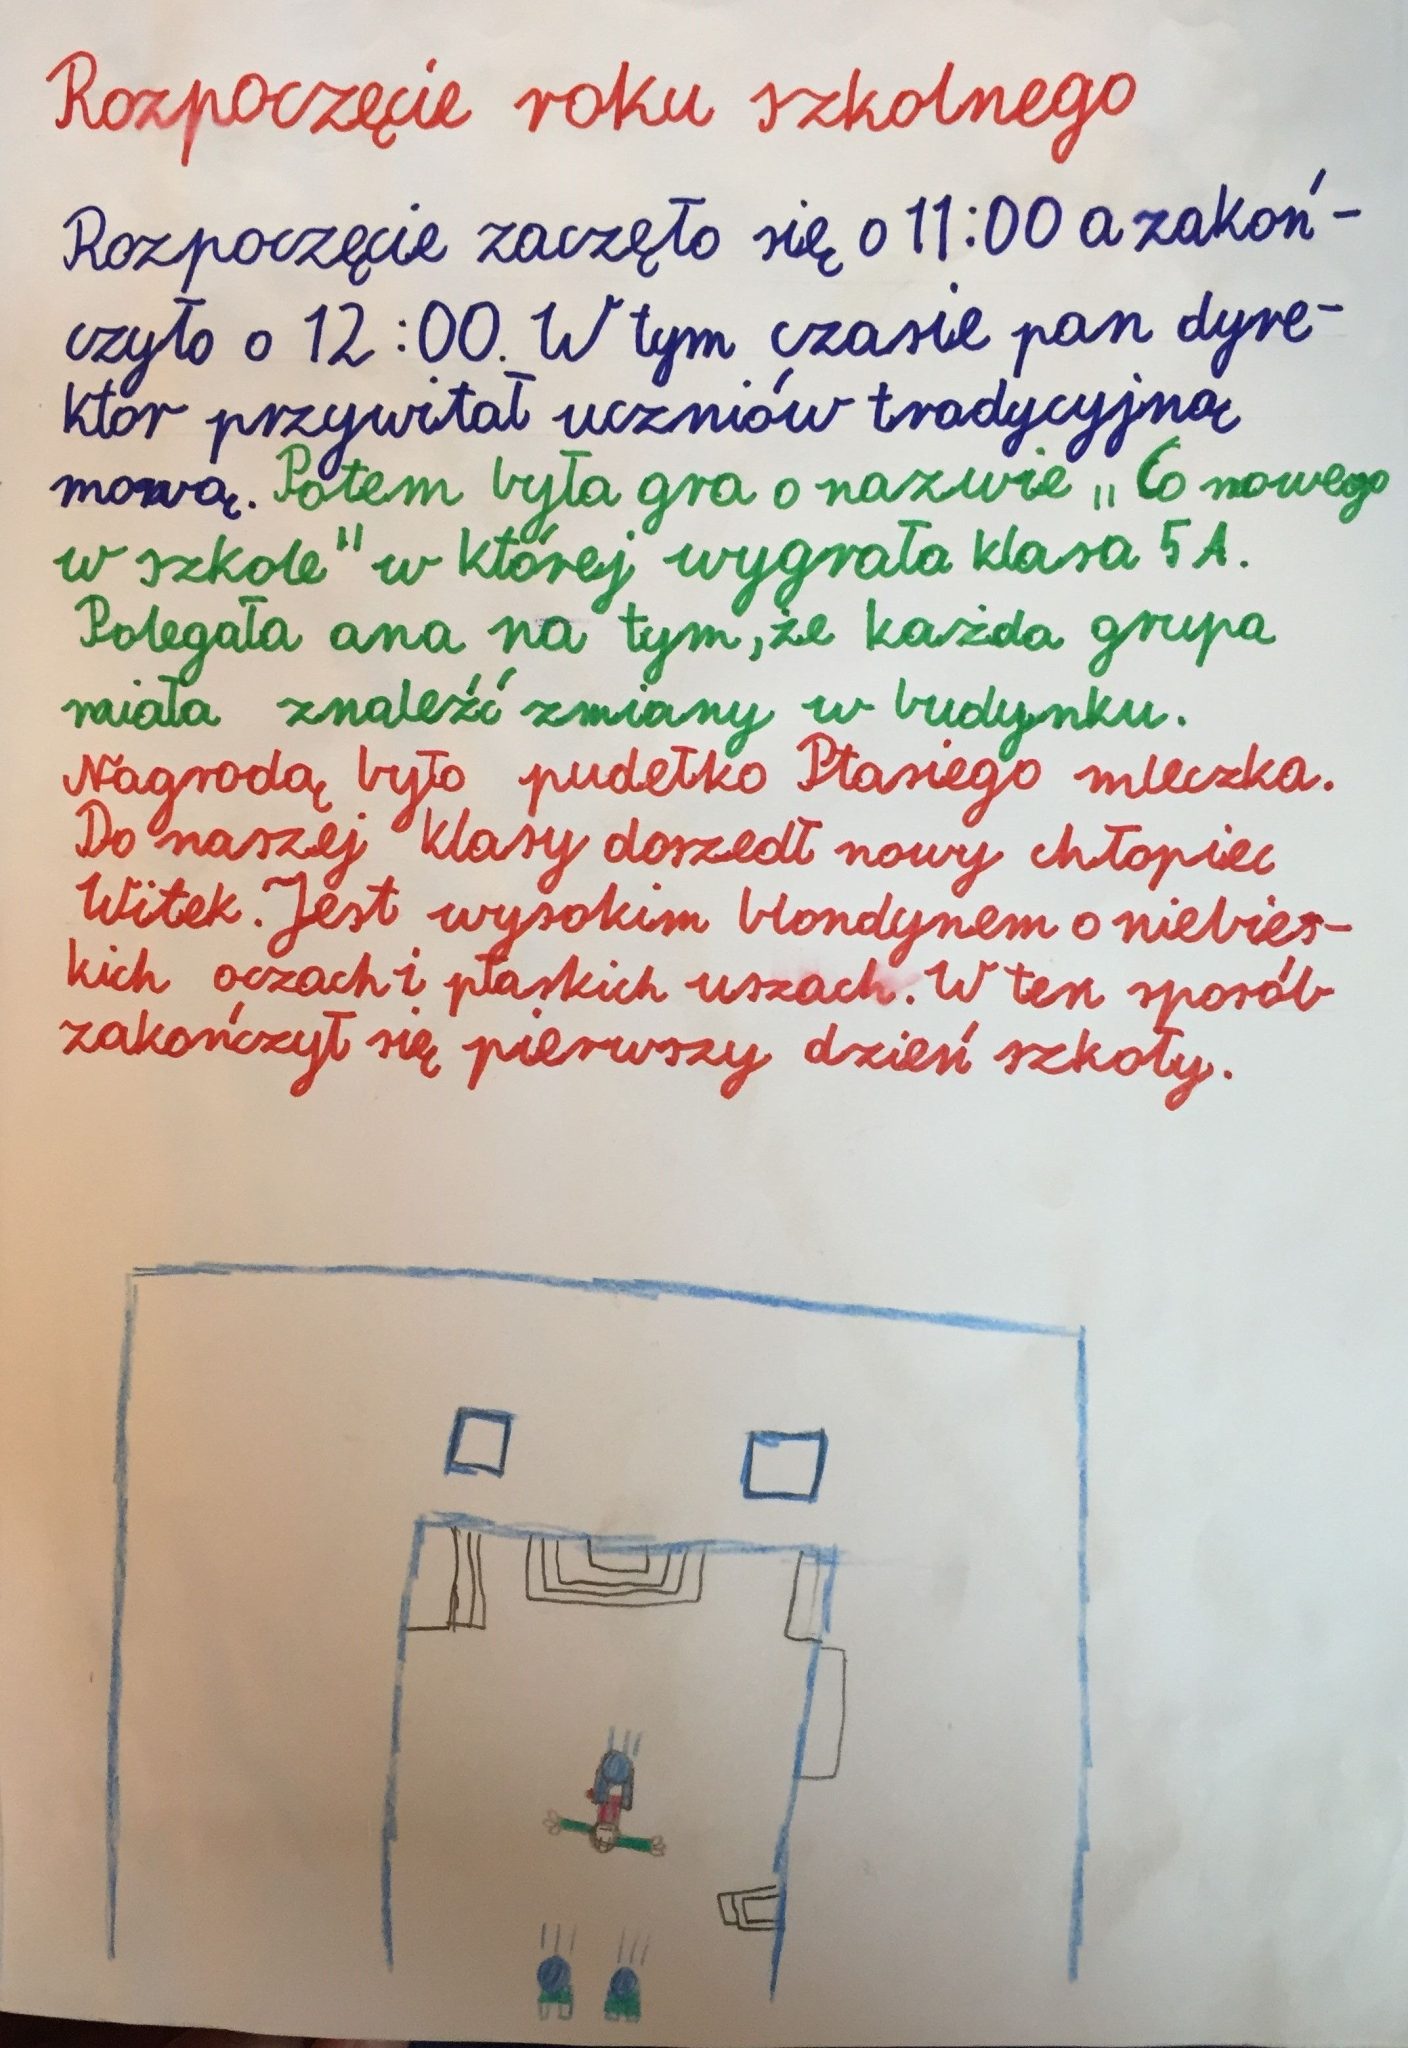 Rozpoczęcie roku szkolnego
Rozpoczęcie zaczęło się o 11:00 a zakoń-
czyło o 12:00. W tym czasie pan dyre-
ktor przywitał uczniów tradycyjną
mową. Potem była gra o nazwie „Co nowego
w szkole" w której wygrała klasa 5A.
Polegała ana na tym, że każda grupa
miała znaleźć zmiany w budynku.
Nagrodą było pudełko Ptasiego mleczka.
Do naszej klasy doszedł nowy chłopiec
Witek. Jest wysokim blondynem o niebies-
kich oczach i płaskich uszach. W ten sposób
zakończył się pierwszy dzień szkoły.